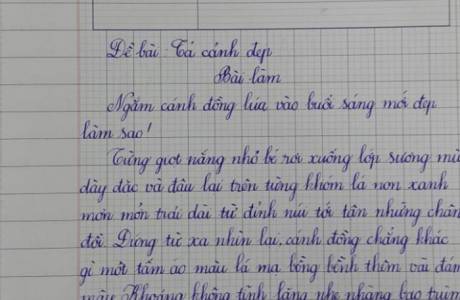 Đề bài Tả cánh đẹp
Bài làm
Ngắm cánh đồng lúa vào buổi sáng mới đẹp
làm sao!
Từng giọt nắng nhỏ bé rơi xuống lớp sương mù
dày đặc và đâu lại trên từng khóm lá non xanh
mơn mởn trải dài từ đỉnh núi tới tận những chân
đồi. Đứng từ xa nhìn lại, cánh đồng chẳng khác
gì một tấm áo màu lá mạ bồng bềnh thêm vài đám
mây. Khoảng không tĩnh lặng nhẹ nhàng bao trùm